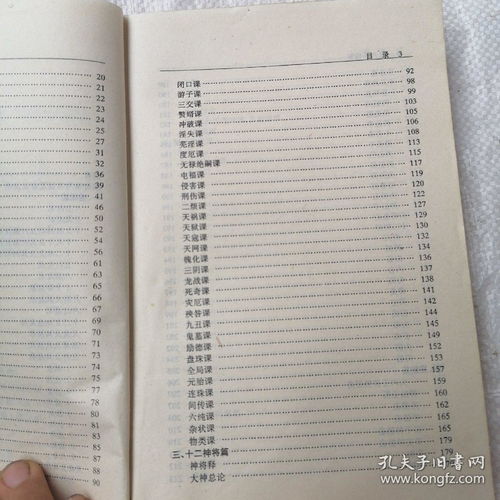 20
21
22
23
24
25
27
31
32
36
39
41
46
50
52
54
56
66
67
70
71
74
75
77
78
80
84
87
88
90
目 录 3
闭口课 92
游子课 98
三交课 99
赘婿课 103
冲破课 105
淫失课 106
芜淫课 108
度厄课 113
无禄绝嗣课 115
屯福课 117
侵害课 119
刑伤课 120
二烦课 122
天祸课 127
天狱课 129
天寇课 130
天网课 132
魄化课 134
三阴课 136
龙战课 137
死奇课 138
灾厄课 141
殃咎课 142
九丑课 144
鬼墓课 145
励德课 149
盘珠课 152
全局课 153
元胎课 157
连珠课 159
间传课 160
六纯课 162
杂状课 165
物类课
三、十二神将篇 179
神将释 179
大神总论
孔夫子旧书网